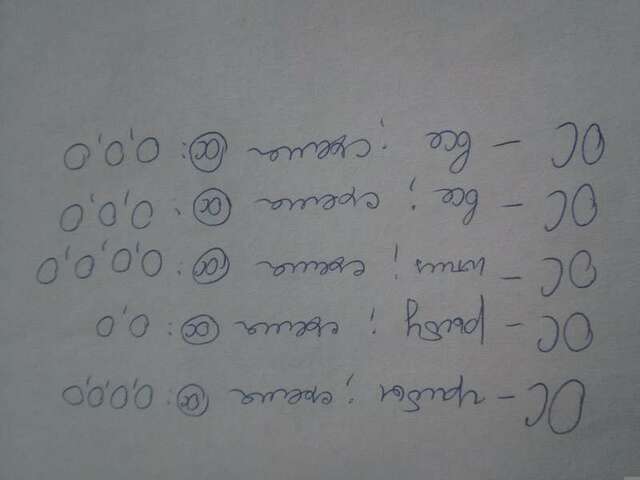 ОС – грибы ; схема ОС: О,О,О,О
ОС – рыбу ; схема ОС: О,О
ОС – птиц ; схема ОС: О,О,О,О
ОС – все ; схема ОС: О,О,О
ОС – все ; схема ОС: О,О,О